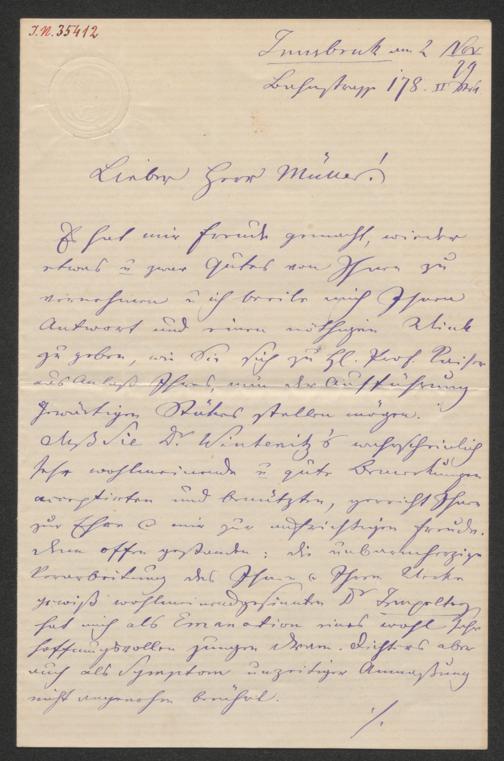 I.N. 35412
Innsbruck am 2 Nov
79
Bahnstrasse 178. II Stck
Lieber Herr Müller!
Es hat mir Freude gemacht, wieder
etwas u zwar Gutes von Ihnen zu
vernehmen u ich beeile mich Ihnen
Antwort und einen nöthigen Wink
zu geben, wie Sie sich zu Hl. Prof. Kaiser
aus Anlaß Ihres, nun der Aufführung
gewärtigen Stückes stellen mögen.
Daß Sie Dr. Winternitz's wahrscheinlich
sehr wohlmeinende u gute Bemerkungen
acceptirten und benützten, gereicht Ihnen
zur Ehre & mir zur aufrichtigen Freude.
Denn offen gestanden: die unbarmherzige
Verarbeitung des Ihnen & Ihrem Werke
gewiß wohlmeinendgesinnten Dr Tempeltey
hat mich als Emanation eines wohl sehr
hoffnungsvollen jungen dram. Dichters aber
auch als Symptom unzeitiger Anmaßung
nicht angenehm berührt.
./.